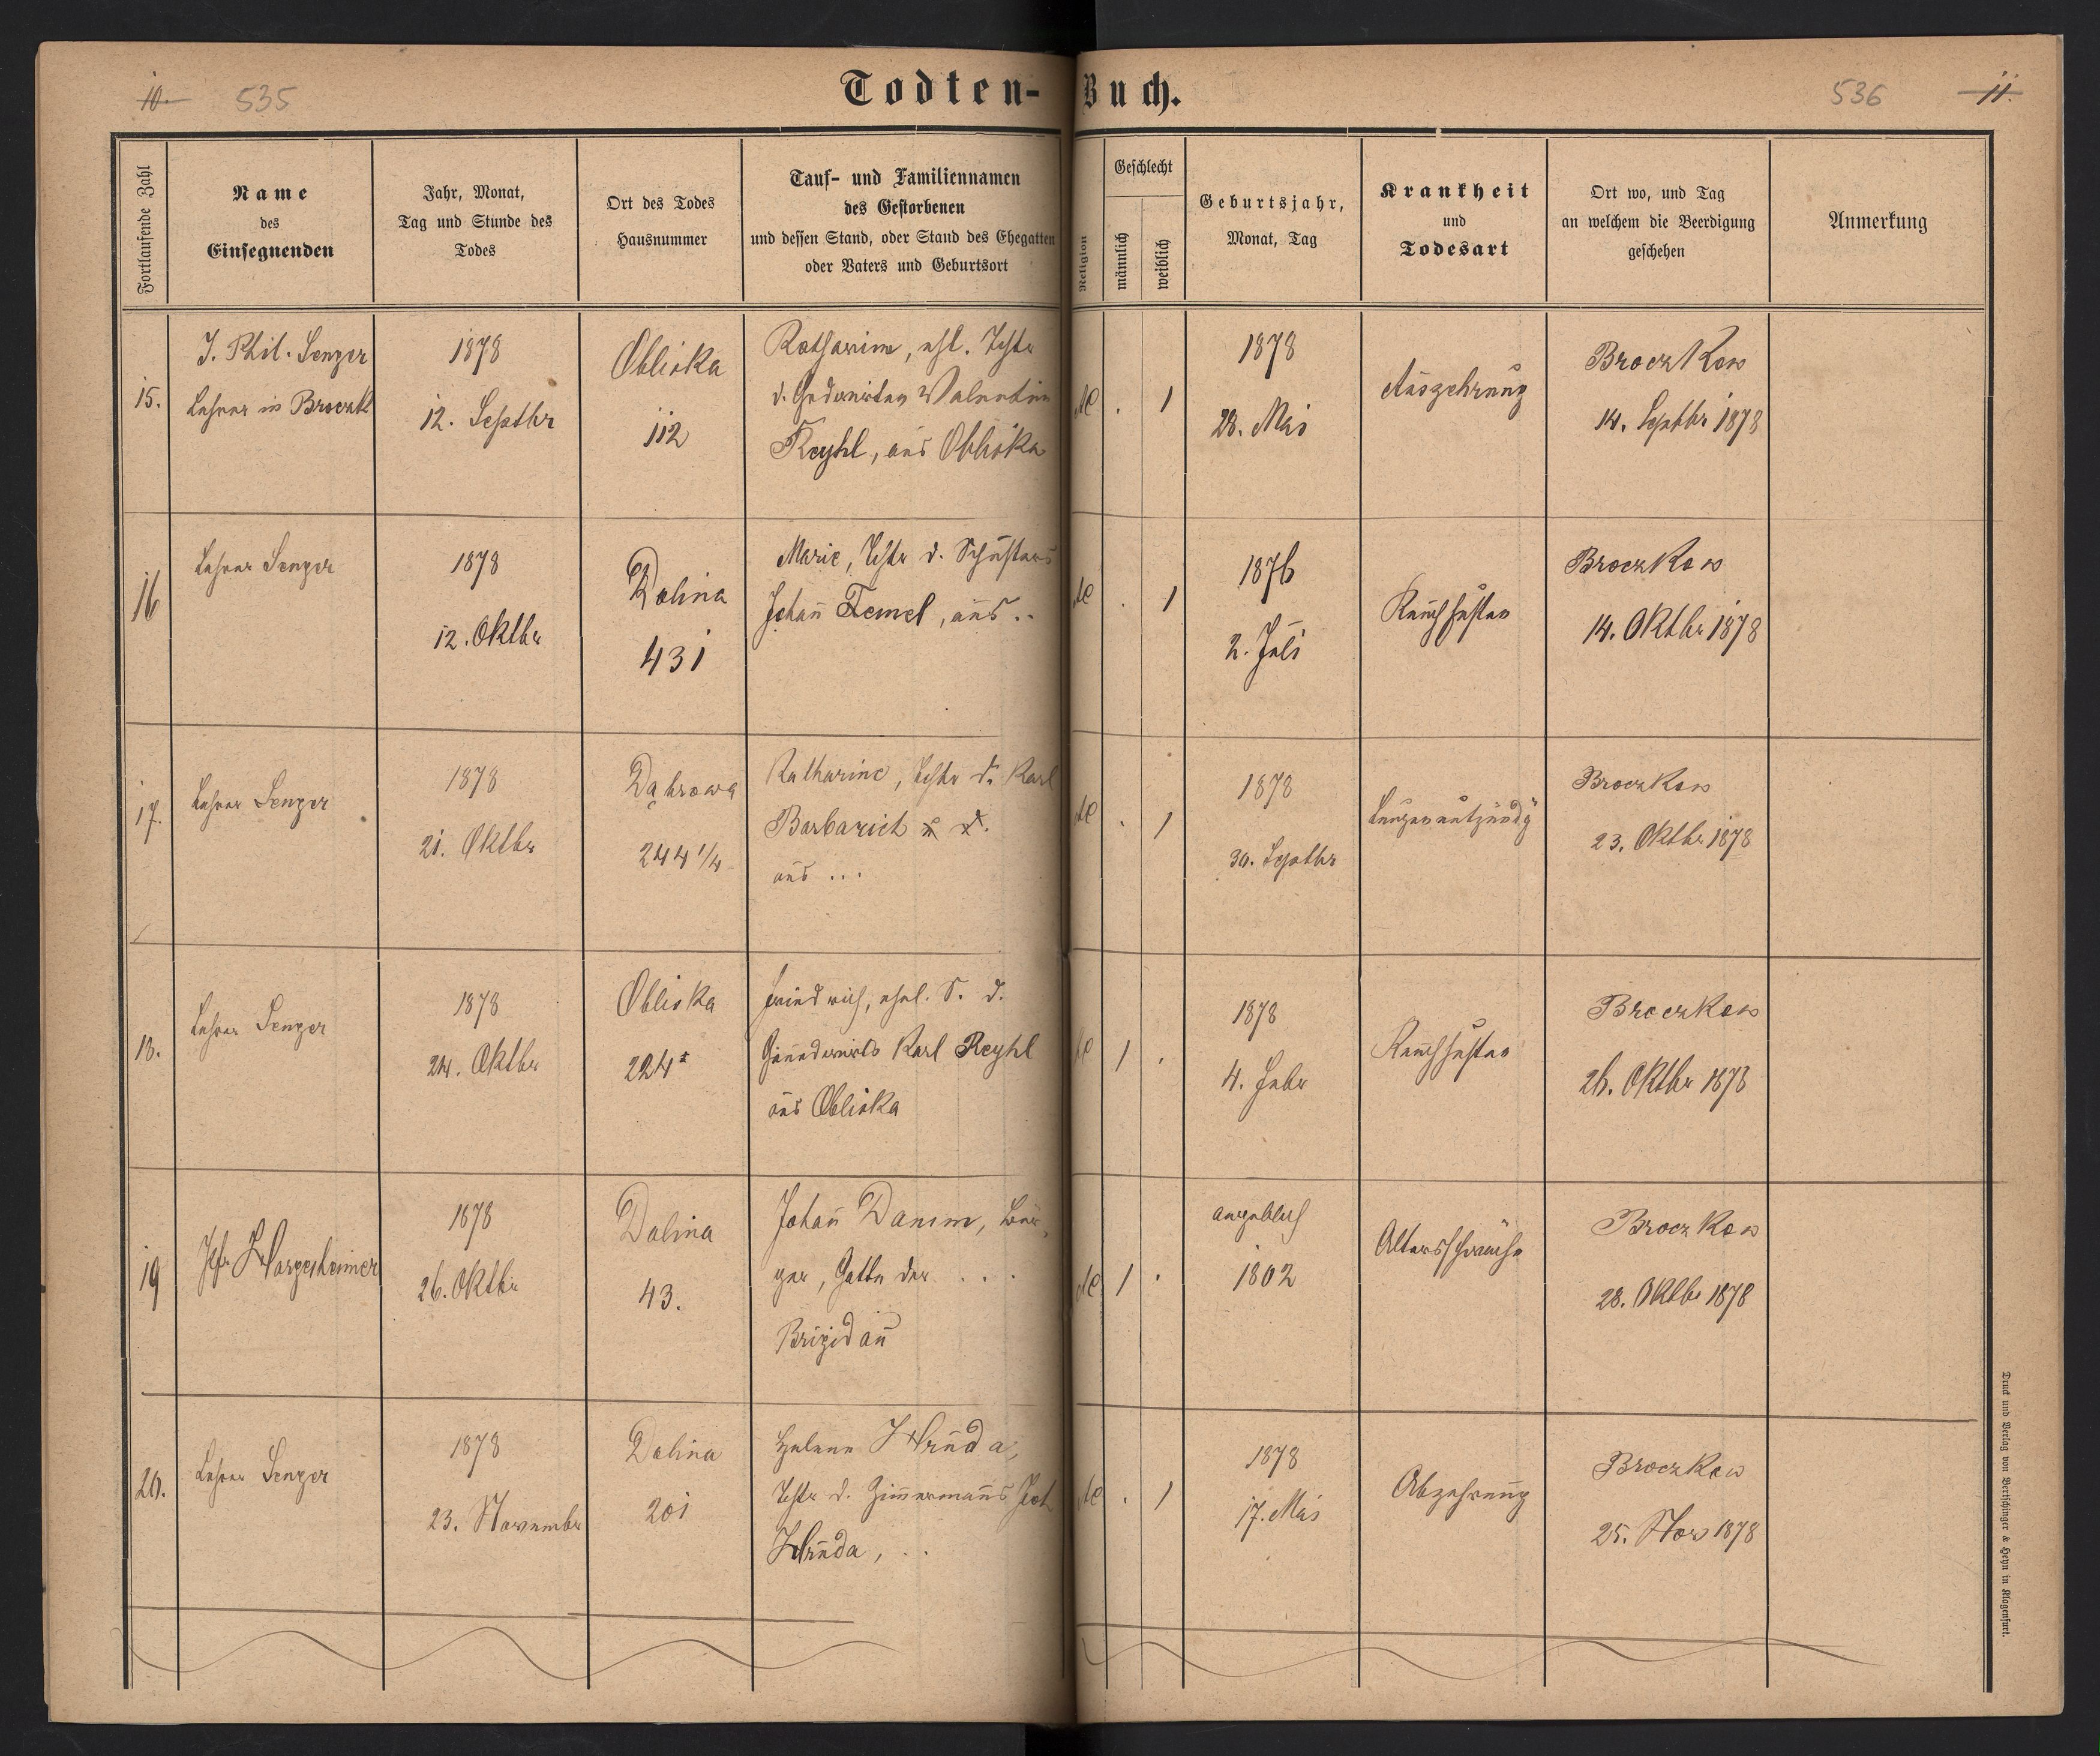 10. 535
Todten-Buch.
536 11.
Fortlaufende Zahl
Name
des
Einsegnenden
Jahr, Monat,
Tag und Stunde des
Todes
Ort des Todes
Hausnummer
Tauf- und Familiennamen
des Gestorbenen
und dessen Stand, oder Stand des Ehegatten
oder Vaters und Geburtsort
Religion
Geschlecht
männlich
weiblich
Geburtsjahr,
Monat, Tag
Krankheit
und
Todesart
Ort wo, und Tag
an welchem die Beerdigung
geschehen
Anmerkung
15.
J. Phil. Senger
Lehrer in Broczk
1878
12. Septbr
Obliska
112
Katharina, ehl. Tchtr
d. Valentin
Keyhl, aus Obliska
AC . 1
1878
28. Mai
Auszehrung
Broczkow
14. Septbr 1878
16
Lehrer Senger
1878
12. Oktbr
Dolina
431
Marie, Tchtr d. Schusters
Johan̄ Temel, aus ..
AC . 1
1876
2. Juli
Keuchhusten
Broczkow
14. Oktbr 1878
17.
Lehrer Senger
1878
21. Oktbr
Dąbrowa
244 1/4
Katharine, Tchtr d. Karl
Barbarich
aus ...
AC . 1
1878
30. Septbr
Lungenentzündg
Broczkow
23. Oktbr 1878
18.
Lehrer Senger
1878
24. Oktbr
Obliska
224
Friedrich, ehel. S. d.
Karl Reyhl
aus Obliska
AC 1 .
1878
4. Febr
Keuchhusten
Broczkow
26. Oktbr 1878
19
Pfr Hargesheimer
1878
26. Oktbr
Dolina
43.
Johan̄ Damm, Bür-
ger, Gatte der . . . .
AC 1 .
angeblich
1802
Altersschwäche
Broczkow
28. Oktbr 1878
20.
Lehrer Senger
1878
23. November
Dolina
201
Helene Hruda,
Tchtr d. Zim̄ermanns Joh
Hruda, . .
AC . 1
1878
17. Mai
Abzehrung
Broczkow
25. Nov 1878
Druck und Verlag von Bertschinger & Heyn in Klagenfurt.